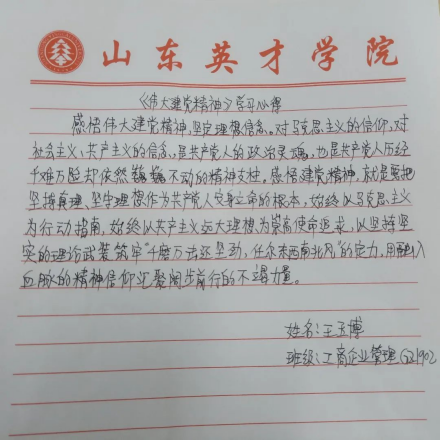 山东英才学院
《伟大建党精神》学习心得
感悟伟大建党精神,坚定理想信念。对马克思主义的信仰,对
社会主义、共产主义的信念,是共产党人的政治灵魂,也是共产党人历经
千难万险却依然巍巍不动的精神支柱。感悟建党精神,就是要把
坚持真理、坚定理想作为共产党人安身立命的根本,始终以马克思主义
为行动指南,始终以共产主义远大理想为崇高使命追求,以坚持坚
实的理论武装筑牢“千磨万击还坚劲,任尔东西南北风”的定力,用融入
血脉的精神信仰汇聚阔步前行的不竭力量。
姓名:王玉博
班级:工商企业管理1902